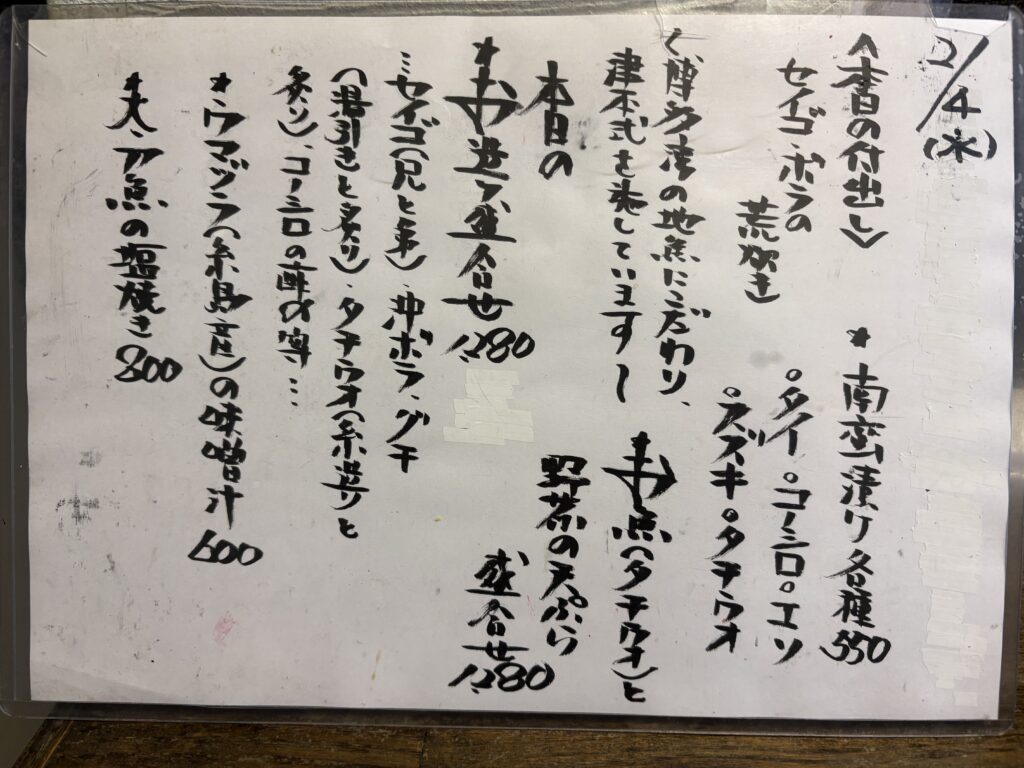 2/4(水)
〈本日の付出し〉
セイゴ、ボラの
荒炊き
*南蛮漬け各種 550
。タイ 。コノシロ 。エソ
。スズキ 。タチウオ
〈博多湾の地魚にこだわり、
津本式を施しています〉
*お魚(タチウオ)と
野菜の天ぷら
盛合せ 1,280
本日の
*お造り盛合せ 1,280
…セイゴ(兄と弟)、沖ボラ、グチ
(湯引きと炙り)、タチウオ(糸造りと
炙り)、コノシロの酢〆等…
*ウマヅラ(糸島産)の味噌汁 600
魚の塩焼き 800